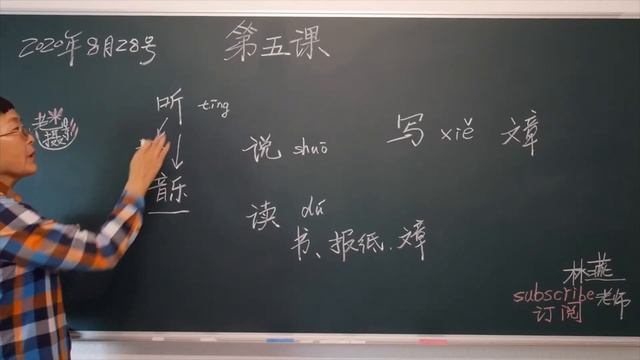 2020年8月28号
第五课
老米
摄影
听 tīng
音乐
说 shuō
读 dú
书、报纸.文章
写 xiě 文章
林燕
subscribe 老师
订阅